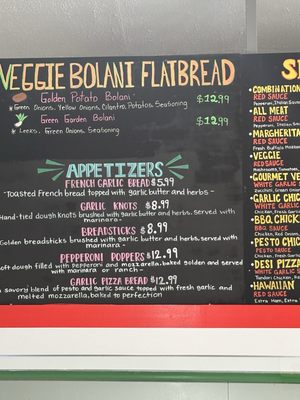 VEGGIE BOLANI FLATBREAD
Golden Potato Bolani $12.99
Green Onions, Yellow Onions, Cilantro, Potatos, Seasoning
Green Garden Bolani $12.99
Leeks, Green Onions, Seasoning
APPETIZERS
FRENCH GARLIC BREAD $5.99
-Toasted French bread topped with garlic butter and herbs-
GARLIC KNOTS $8.99
Hand-tied dough knots brushed with garlic butter and herbs. served with
marinara-
BREADSTICKS $8.99
Golden breadsticks brushed with garlic butter and herbs. served with
marinara-
PEPPERONI POPPERS $12.99
Soft dough filled with pepperoni and mozzarella, baked golden and served
with marinara or ranch-
GARLIC PIZZA BREAD $12.99
A savory blend of pesto and garlic sauce topped with fresh garlic and
melted mozzarella, baked to perfection
COMBINATION
RED SAUCE
Pepperoni, Italian
ALL MEAT
RED SAUCE
Pepperoni, Italian
MARGHERITA
RED SAUCE
Fresh Buffalo
VEGGIE
RED SAUCE
Mushrooms,
GOURMET
WHITE GARLIC
GARLIC CHICK
WHITE GARLIC
Chicken, Fresh
BBQ CHICK
BBQ SAUCE
Chicken, Red
PESTO CHIC
PESTO SAUCE
Chicken, Fresh
DESI PIZZA
WHITE GARLIC S
Tandoori Chicken,
HAWAIIAN
RED SAUCE
Extra Ham,